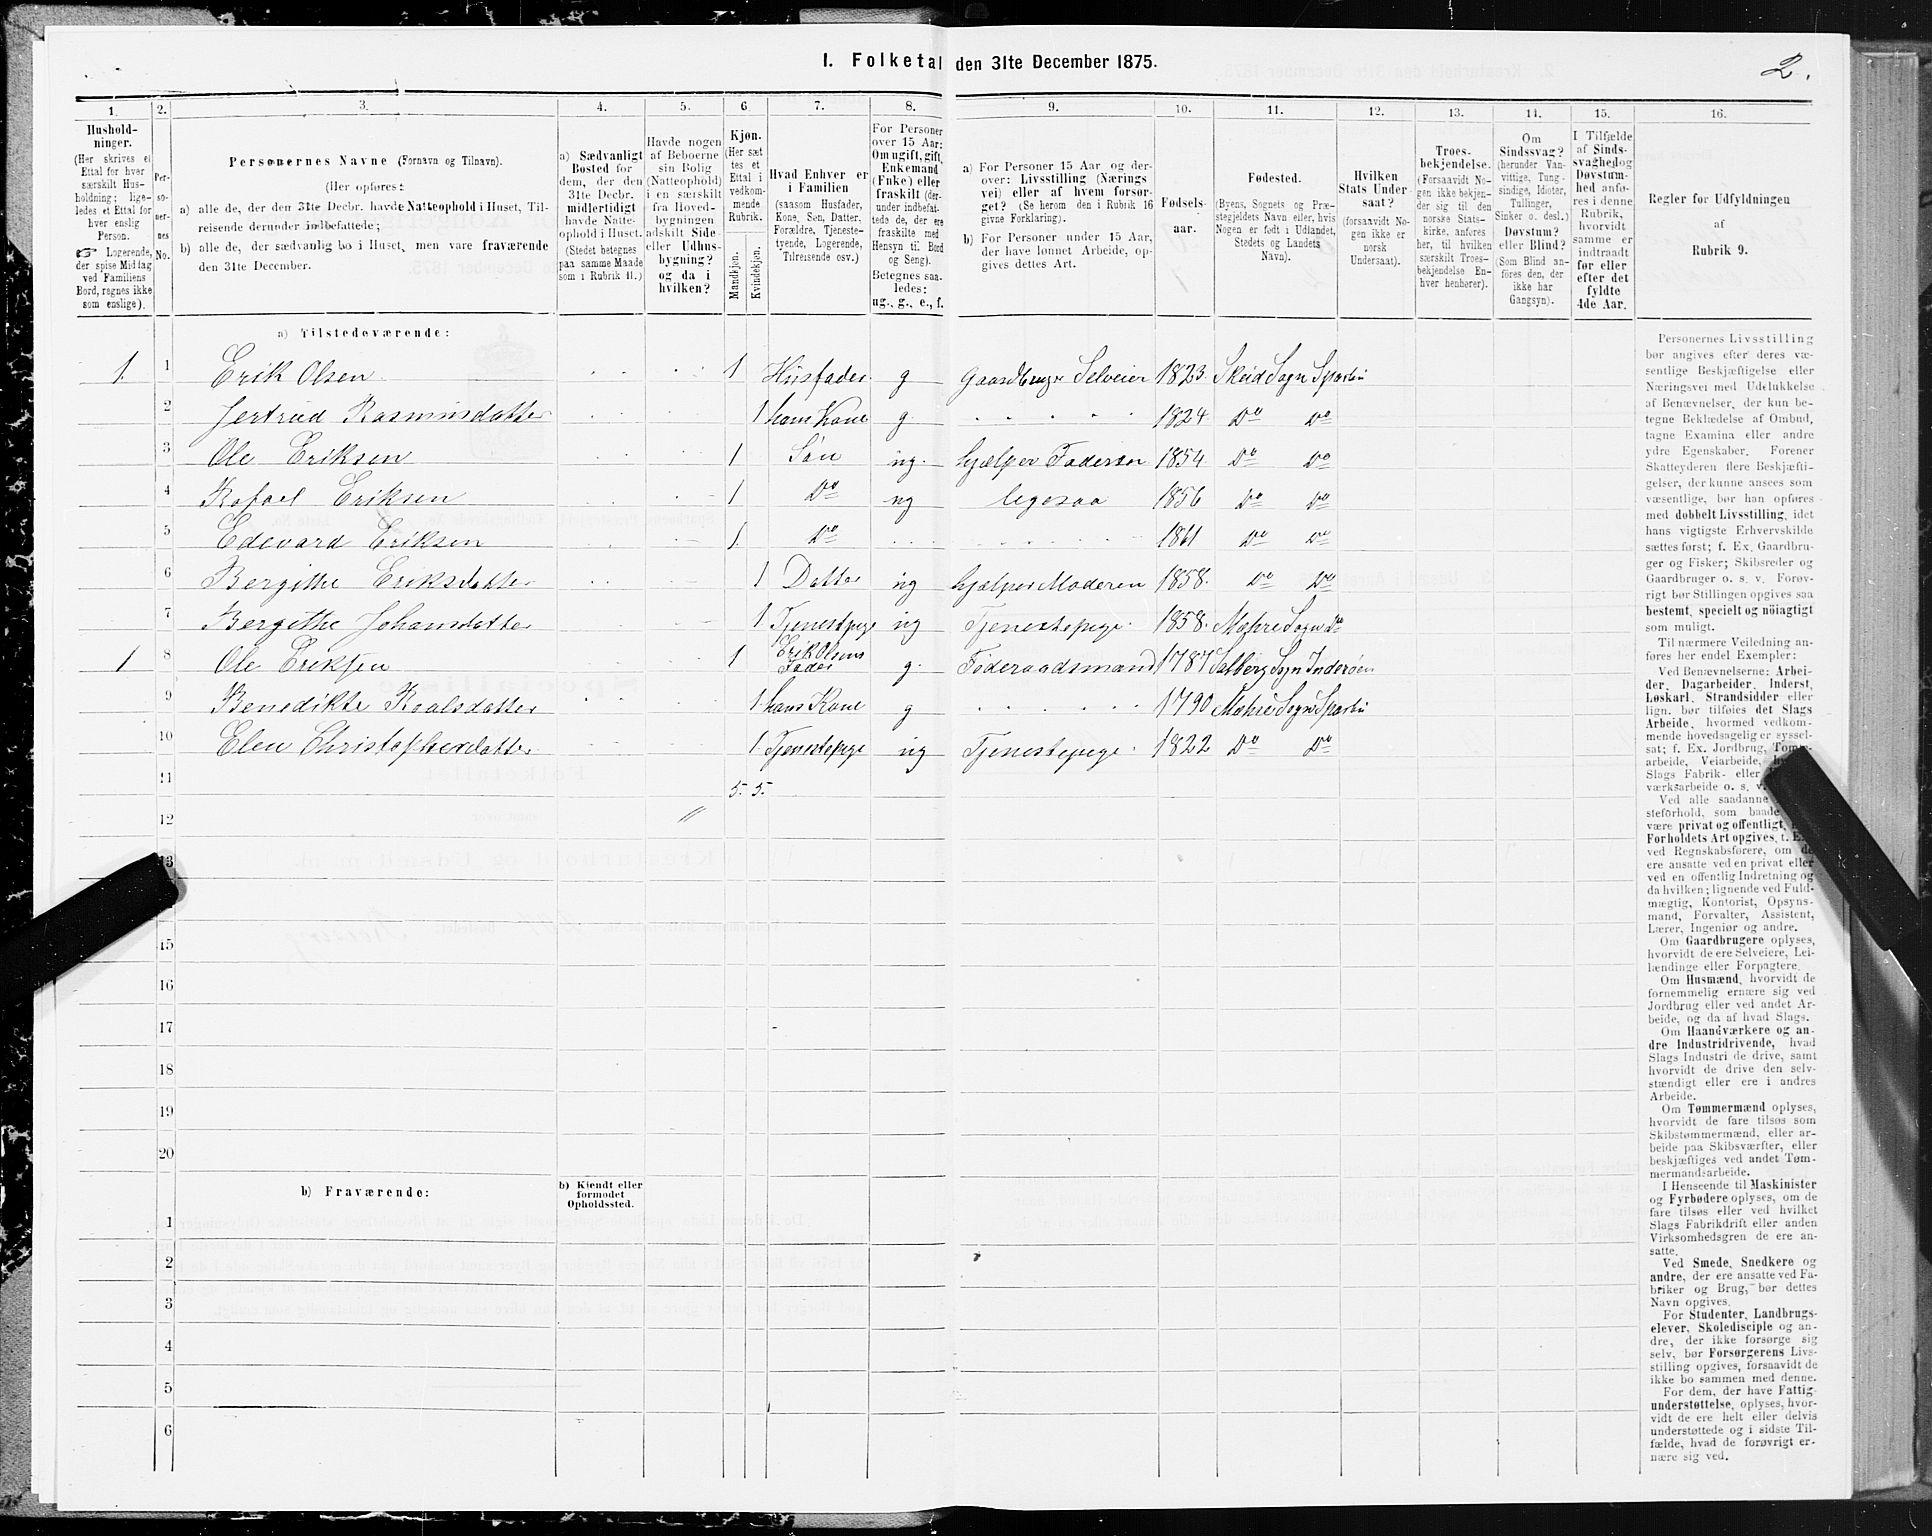 I. Folketal den 31te December 1875.
2.
1. 2. 3. 4. 5. 6. 7. 8. 9. 10. 11. 12. 13. 14. 15. 16.
Hushold-
ninger.
(Her skrives et
Ettal for hver
særskilt Hus-
holdning; lige-
ledes et Ettal for
hver enslig
Person.
☞ Logerende,
der spise Middag
ved Familiens
Bord, regnes ikke
som enslige).
Per-
so-
ner-
nes
No.
Personernes Navne (Fornavn og Tilnavn).
(Her opføres:
a) alle de, der den 31te Decbr. havde Natteophold i Huset, Til-
reisende derunder indbefattede;
b) alle de, der sædvanlig bo i Huset, men vare fraværende
den 31te December.
a) Sædvanligt
Bosted for
dem, der den
31te Decbr.
midlertidigt
havde Natte-
ophold i Huset.
(Stedet betegnes
paa samme Maade
som i Rubrik 11.)
Havde nogen
af Beboerne
sin Bolig
(Natteophold)
i en særskilt
fra Hoved-
bygningen
adskilt Side-
eller Udhus-
bygning?
og da i
hvilken?
Kjøn.
(Her sæt-
tes et
Ettal i
vedkom-
mende
Rubrik.
Mandkjøn.
Kvindekjøn.
Hvad Enhver er
i Familien
(saasom Husfader,
Kone, Søn, Datter,
Forældre, Tjeneste-
tyende, Logerende,
Tilreisende osv.)
For Personer
over 15 Aar:
Om ugift, gift,
Enkemand
(Enke) eller
fraskilt (der-
under indbefat-
tede de, der ere
fraskilte med
Hensyn til Bord
og Seng).
Betegnes saa-
ledes:
ug., g., e., f.
a) For Personer 15 Aar og der-
over: Livsstilling (Nærings-
vei) eller af hvem forsør-
get? (Se herom den i Rubrik 16
givne Forklaring).
b) For Personer under 15 Aar,
der have lønnet Arbeide, op-
gives dettes Art.
Fødsels-
aar.
Fødested.
(Byens, Sognets og Præ-
stegjeldets Navn eller, hvis
Nogen er født i Udlandet,
Stedets og Landets
Navn).
Hvilken
Stats Under-
saat?
(forsaavidt No-
gen ikke er
norsk
Undersaat).
Troes-
bekjendelse.
(Forsaavidt No-
gen ikke bekjen-
der sig til den
norske Stats-
kirke, anføres
her, til hvilken
særskilt Troes-
bekjendelse En-
hver henhører).
Om
Sindssvag?
(herunder Van-
vittige, Tung-
sindige, Idioter,
Tullinger,
Sinker o. desl.)
Døvstum?
eller Blind?
(Som Blind an-
føres den, der
ikke har
Gangsyn).
I Tilfælde
af Sinds-
svaghed og
Døvstum-
hed anfø-
res i denne
Rubrik,
hvorvidt
samme er
indtraadt
før eller
efter det
fyldte
4de Aar.
Regler for Udfyldningen
af
Rubrik 9.
a) Tilstedeværende:
1 1 Erik Olsen 1 Husfader g Gaardbruger Selveier 1823 Skeid Sogn Sparbu
2 Jertrud Rasmusdatter 1 hans Kone g 1824 Do Do
3 Ole Eriksen 1 Søn ug. hjælper Faderen 1854 Do Do
4 Rafael Eriksen 1 Do ug ligesaa 1856 Do Do
5 Edevard Eriksen 1 Do 1861 Do Do
6 Bergithe Eriksdatter 1 Datter ug hjælper Moderen 1858. Do Do
7 Bergithe Johansdatter 1 Tjenestpige ug Tjenestepige. 1858. Mæhre Sogn Do
1 8 Ole Eriksen 1 Erik Olsens Fader g. Føderaadsmand 1787 Salberg Sogn Inderøen
9 Benedikte Roalsdatter 1 hans Kone g 1790 Mæhre Sogn Sparbu
10 Elen Christopherdatter 1 Tjenestepige ug Tjenestepige. 1822 Do Do
11 5. 5.
12 "
13
15
16
17
18
19
20
b) Fraværende:
b) Kjendt eller
formodet
Opholdssted.
1
2
3
4
5
6
Personernes Livsstilling
bør angives efter deres væ-
sentlige Beskjæftigelse eller
Næringsvei med Udelukkelse
af Benævnelser, der kun be-
tegne Beklædelse af Ombud,
tagne Examina eller andre
ydre Egenskaber. Forener
Skatteyderen flere Beskjæfti-
gelser, der kunne ansees som
væsentlige, bør han opføres
med dobbelt Livsstilling, idet
hans vigtigste Erhvervskilde
sættes først; f. Ex. Gaardbru-
ger og Fisker; Skibsreder og
Gaardbruger o. s. v. Forøv-
rigt bør Stillingen opgives saa
bestemt, specielt og nøiagtigt
som muligt.
Til nærmere Veiledning an-
føres her endel Exempler:
Ved Benævnelserne: Arbei-
der, Dagarbeider, Inderst,
Løskarl, Strandsidder eller
lign. bør tilføies det Slags
Arbeide, hvormed vedkom-
mende hovedsagelig er syssel-
sat; f. Ex. Jordbrug, Tømte-
arbeide, Veiarbeide,
Slags Fabrik- eller
værksarbeide o. s. v.
Ved alle saadanne
steforhold, som baade
være privat og offentligt,
Forholdets Art opgives, t. Ex.
ved Regnskabsførere, om de
ere ansatte ved en privat eller
ved en offentlig Indretning og
da hvilken; lignende ved Fuld-
mægtig, Kontorist, Opsyns-
mand, Forvalter, Assistent,
Lærer, Ingeniør og andre.
Om Gaardbrugere oplyses,
hvorvidt de ere Selveiere, Lei-
lændinge eller Forpagtere.
Om Husmænd, hvorvidt de
fornemmelig ernære sig ved
Jordbrug eller ved andet Ar-
beide, og da af hvad Slags.
Om Haandværkere og an-
dre Industridrivende, hvad
Slags Industri de drive, samt
hvorvidt de drive den selv-
stændigt eller ere i andres
Arbeide.
Om Tømmermænd oplyses,
hvorvidt de fare tilsøs som
Skibstømmermænd, eller ar-
beide paa Skibsværfter, eller
beskjæftiges ved andet Tøm-
mermandsarbeide.
I Henseende til Maskinister
og Fyrbødere oplyses, om de
fare tilsøs eller ved hvilket
Slags Fabrikdrift eller anden
Virksomhedsgren de ere an-
satte.
Ved Smede, Snedkere og
andre, der ere ansatte ved Fa-
briker og Brug, bør dettes
Navn opgives.
For Studenter, Landbrugs-
elever, Skoledisciple og an-
dre, der ikke forsørge sig
selv, bør Forsørgerens Livs-
stilling opgives, forsaavidt de
ikke bo sammen med denne.
For dem, der have Fattig-
understøttelse, oplyses, hvor-
vidt de ere helt eller delvis
understøttede og i sidste Til-
fælde, hvad de forøvrigt er-
nære sig ved.